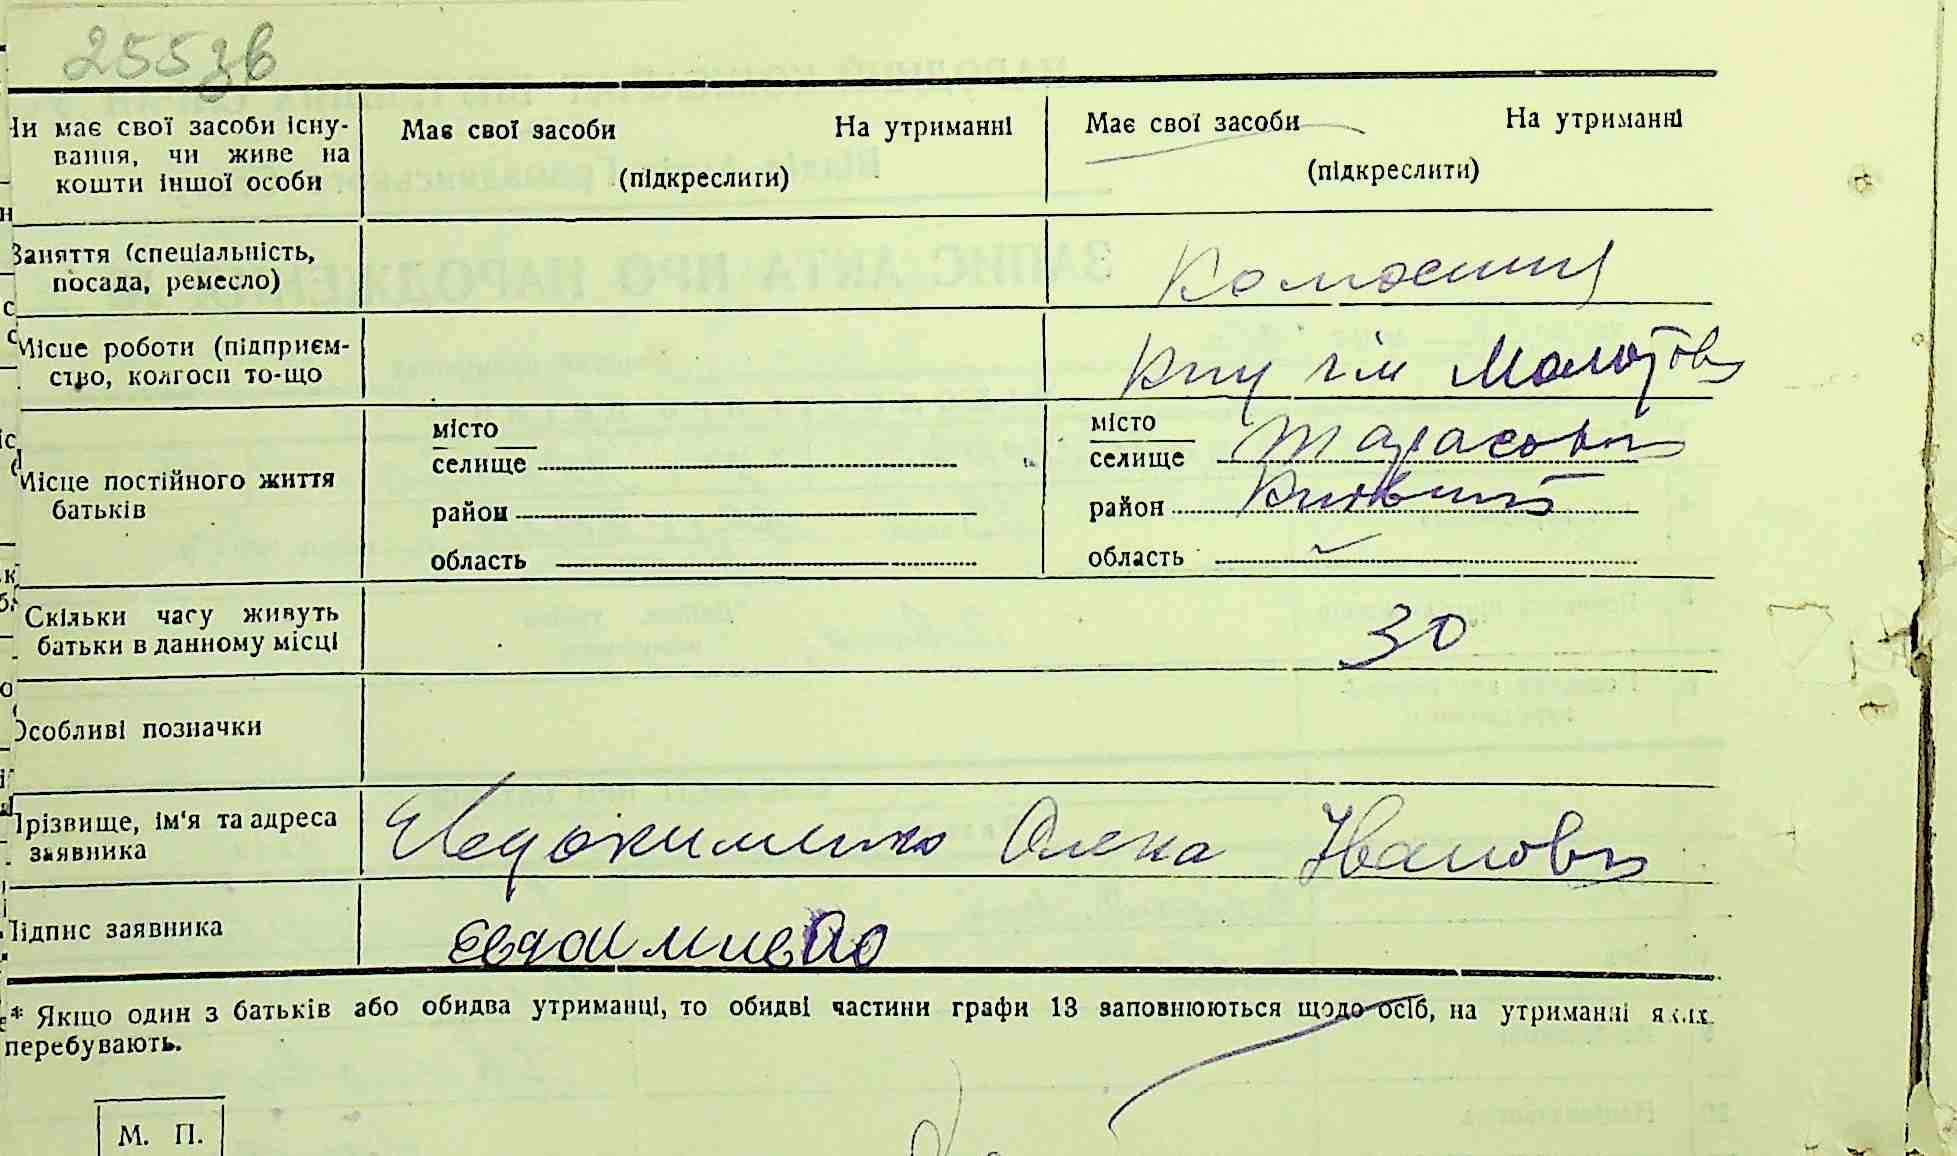 255зв
Чи має свої засоби існу-
вання, чи живе на
кошти іншої особи
Має свої засоби На утриманні
(підкреслити)
Має свої засоби На утриманні
(підкреслити)
Заняття (спеціальність,
посада, ремесло)
Місце роботи (підприєм-
ство, колгосп то-що
їм Молотова
Місце постійного життя
батьків
місто
селище
район
область
місто
селище Тарасовка
район
область
Скільки часу живуть
батьки в данному місці
30
Особливі позначки
Прізвище, ім'я та адреса
заявника
Евдокименко Олена Івановна
Підпис заявника
* Якщо один з батьків або обидва утриманці, то обидві частини графи 13 заповнюються щодо осіб, на утриманні яких
перебувають.
М. П.